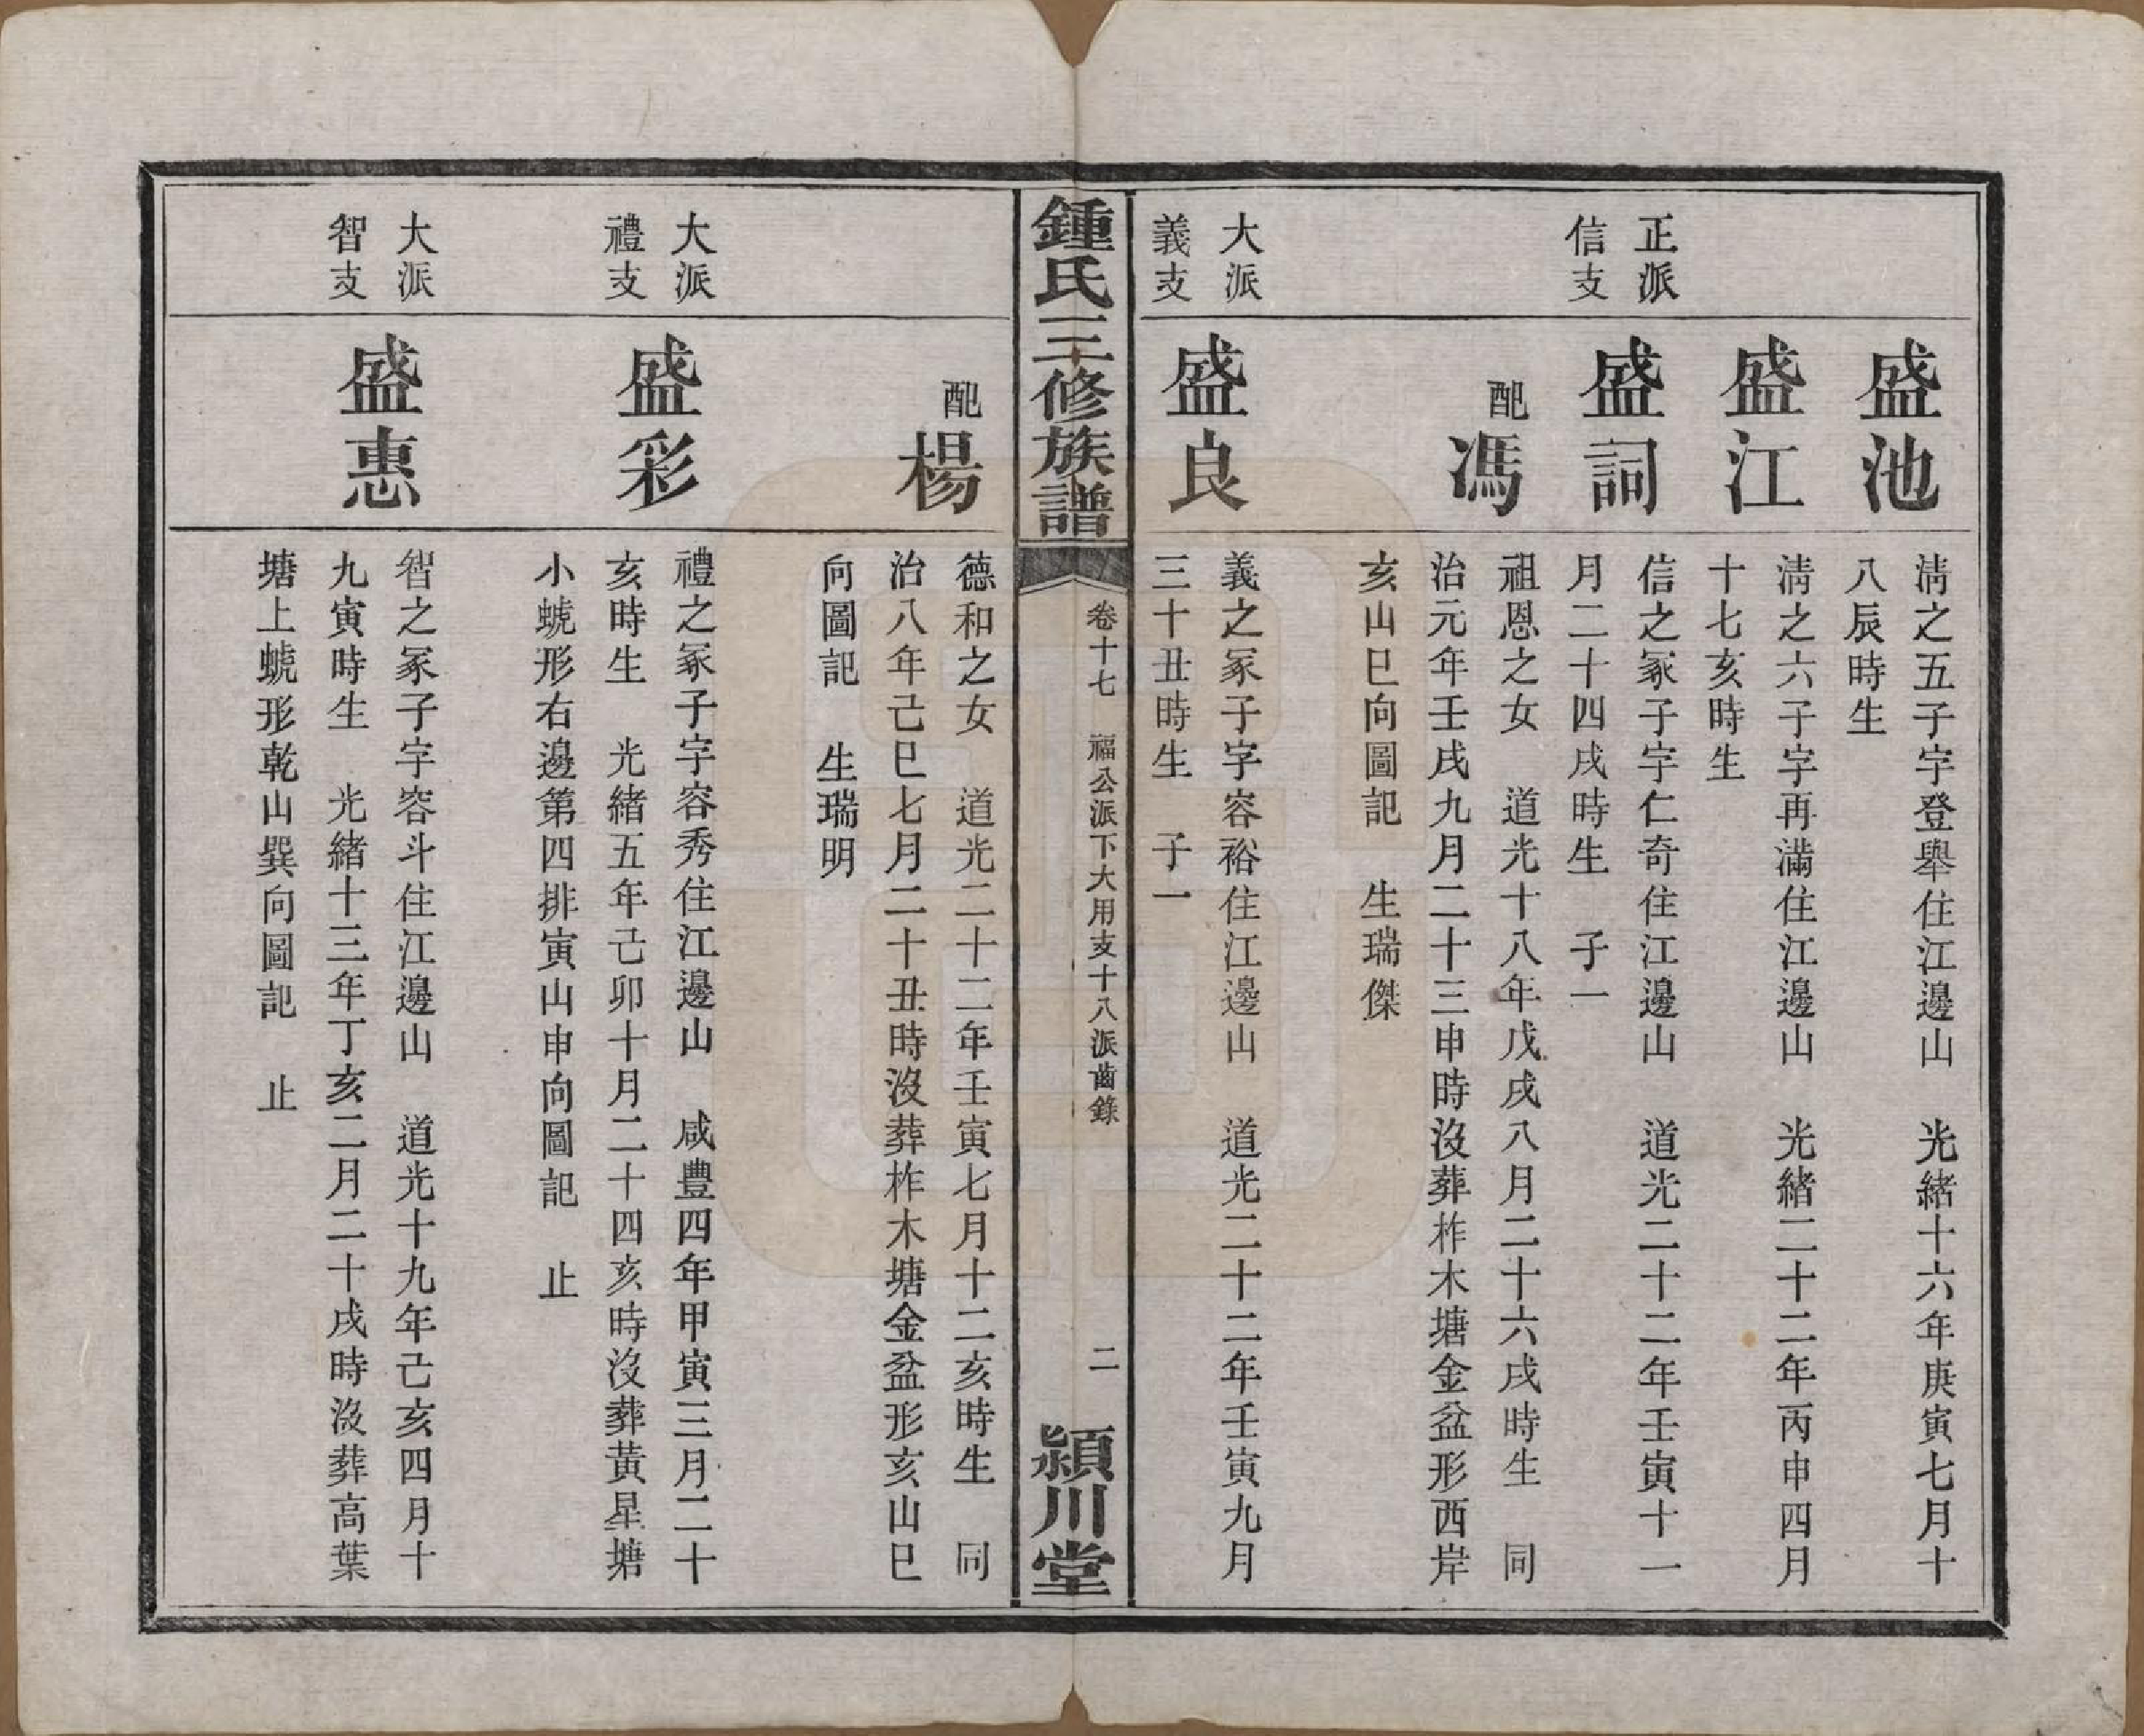 盛池
清之五子字登舉住江邊山　光緒十六年庚寅七月十
八辰時生
盛江
清之六子字再滿住江邊山　光緒二十二年丙申四月
十七亥時生
正派
信支
盛詞
信之冢子字仁奇住江邊山　道光二十二年壬寅十一
月二十四戌時生　子一
配馮
祖恩之女　道光十八年戊戌八月二十六戌時生　同
治元年壬戌九月二十三申時沒葬柞木塘金盆形西岸
亥山巳向圖記　生瑞傑
大派
義支
盛良
義之冢子字容裕住江邊山　道光二十二年壬寅九月
三十丑時生　子一
鍾氏三修族譜
卷十七　福公派下大用支十八派齒錄
二
潁川堂
配楊
德和之女　道光二十二年壬寅七月十二亥時生　同
治八年己巳七月二十丑時沒葬柞木塘金盆形亥山巳
向圖記　生瑞明
大派
禮支
盛彩
禮之冢子字容秀住江邊山　咸豐四年甲寅三月二十
亥時生　光緒五年己卯十月二十四亥時沒葬黃星塘
小蜣形右邊第四排寅山申向圖記　止
大派
智支
盛惠
智之冢子字容斗住江邊山　道光十九年己亥四月十
九寅時生　光緒十三年丁亥二月二十戌時沒葬高葉
塘上蜣形乾山巽向圖記　止